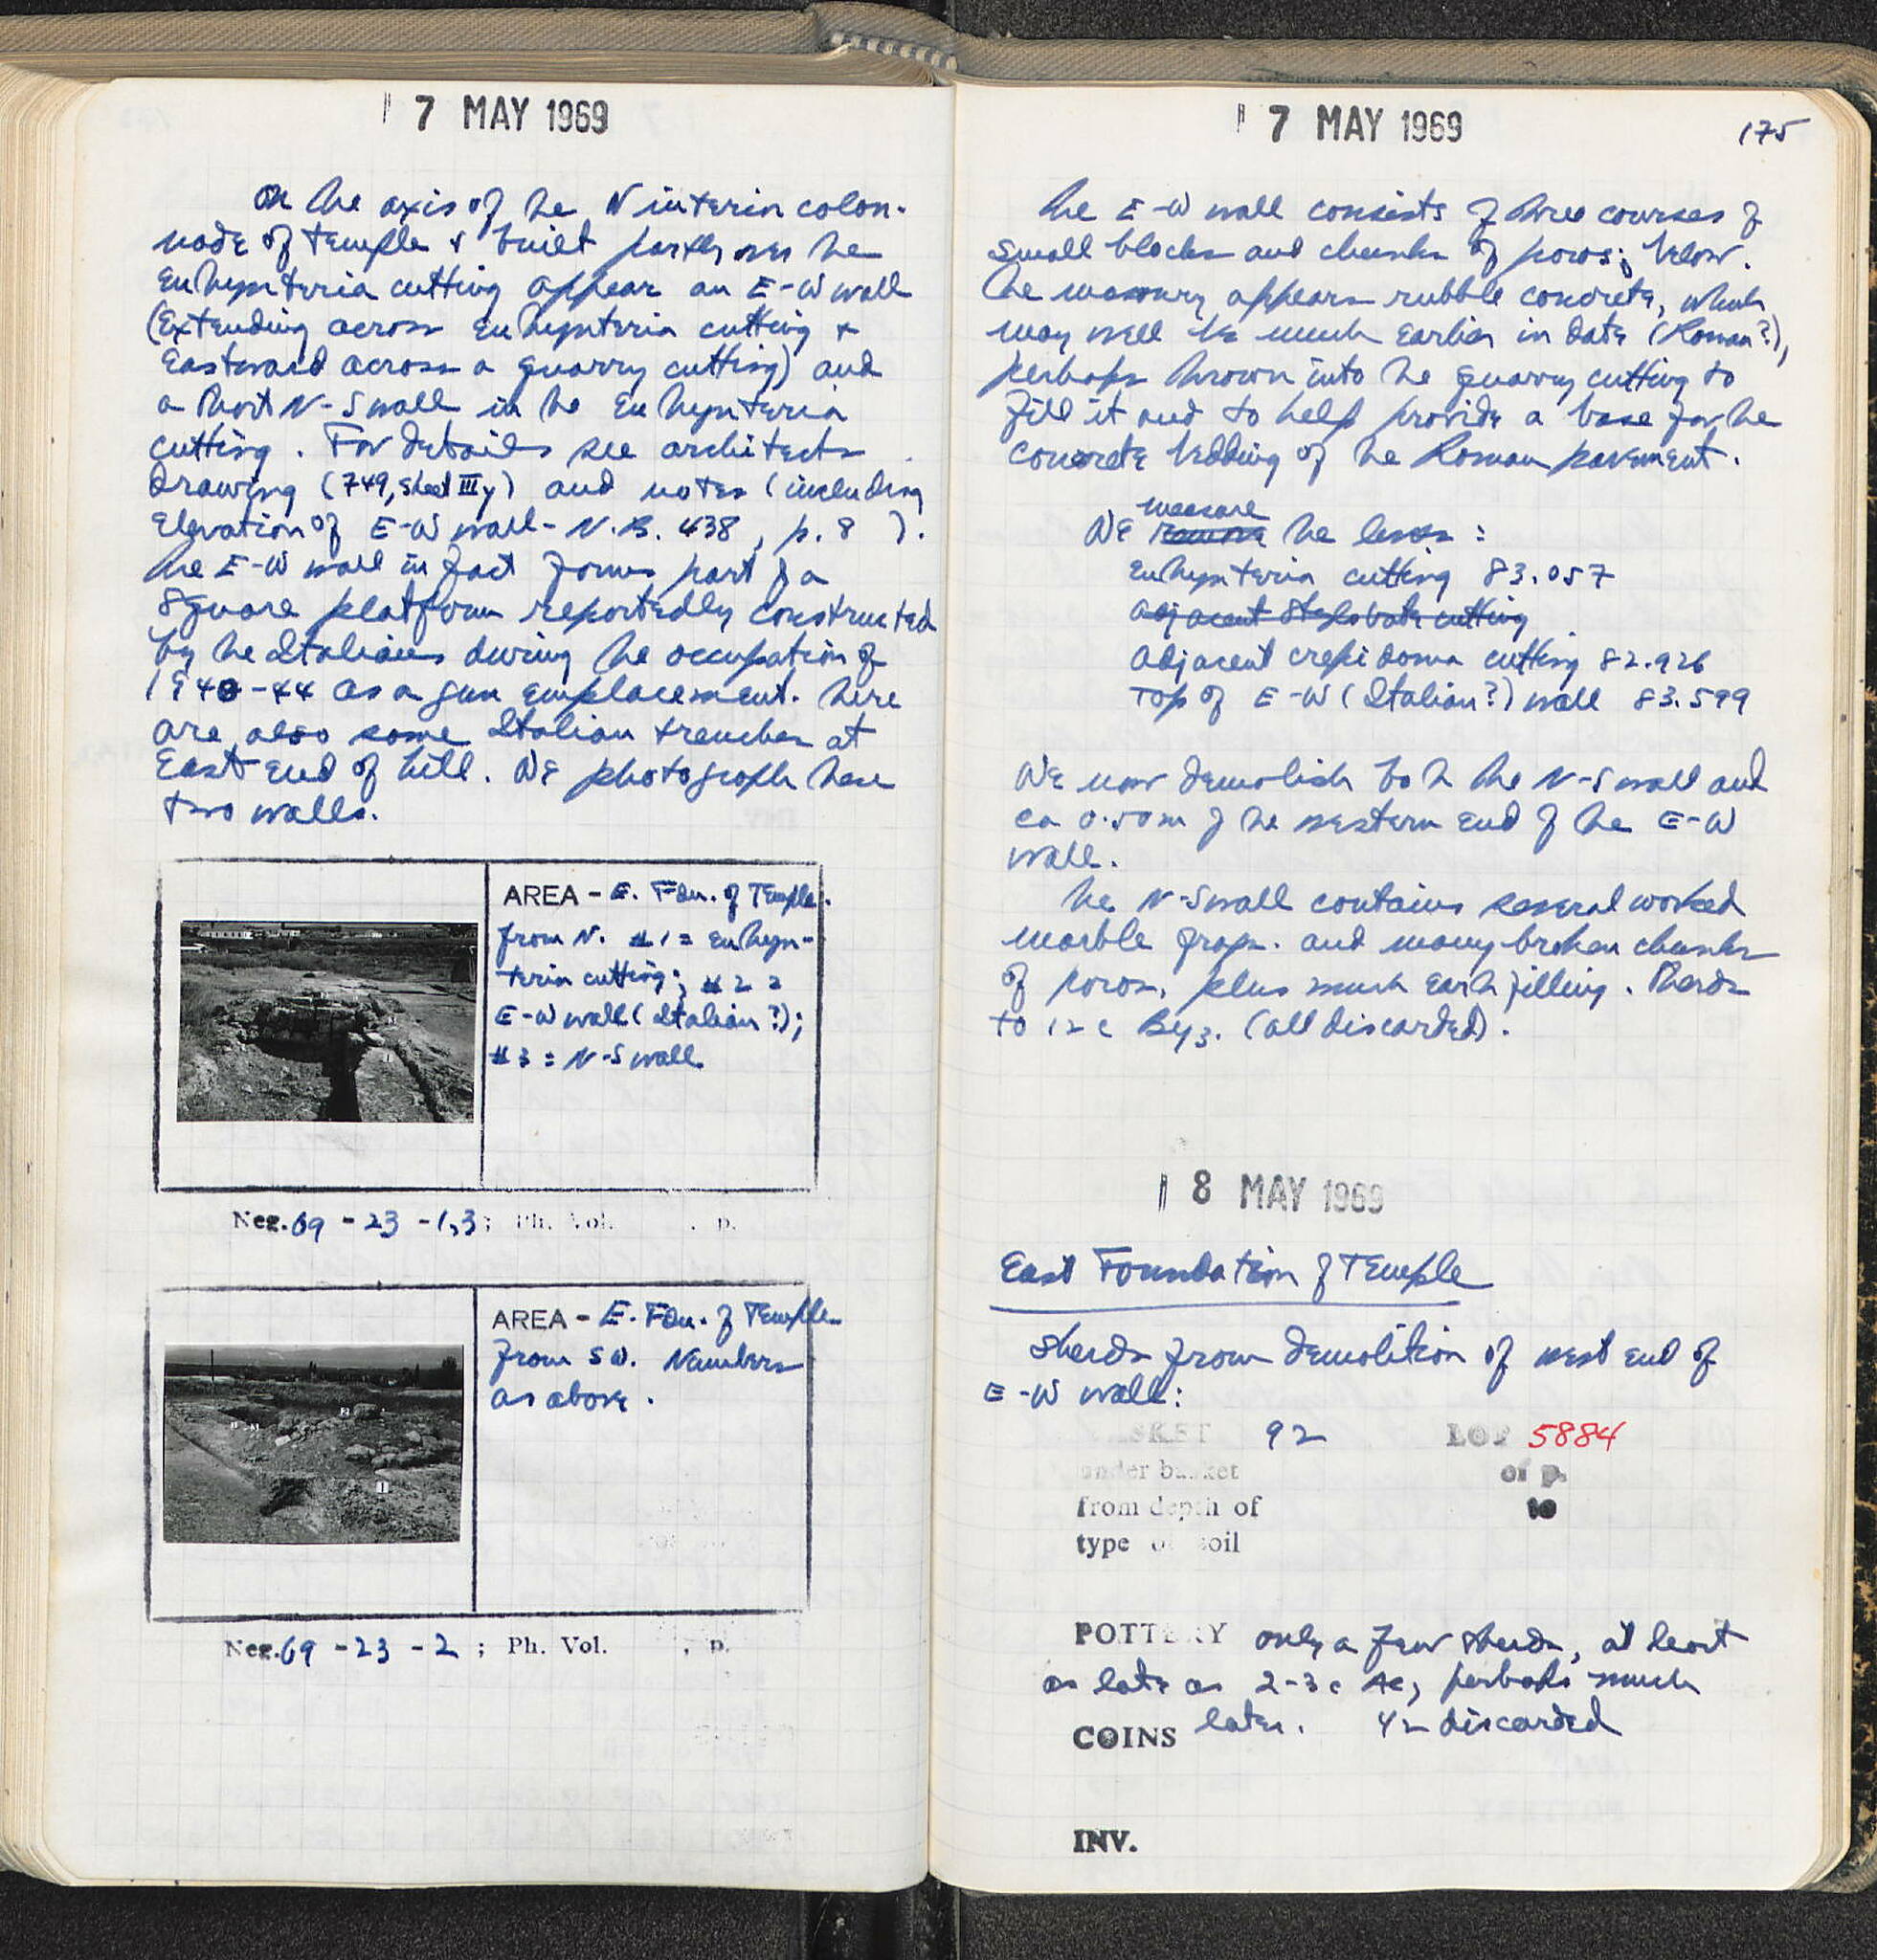 17 MAY 1969
On the axis of the N interior colon-
nade of temple & built partly over the
euthynteria cutting appear an E-W wall
(extending across euthynteria cutting &
eastward across a quarry cutting) and
a short N-S wall in the euthynteria
cutting. For details see architects
drawing (749, sheet III y) and notes (including
elevation of E-W wall - N.B. 438, p. 8 ).
The E-W wall in fact forms part of a
square platform reportedly constructed
by the Italians during the occupation of
1940-44 as a gun emplacement. There
are also some Italian trenches at
East end of hill. We photograph these
two walls.
AREA - E. Fdn. of Temple.
from N. #1 = euthyn-
teria cutting; #2 =
E-W wall (Italian?);
#3 = N-S wall
Neg. 69 - 23 - 1,3; Ph. Vol. , p.
AREA - E. Fdn. of Temple
from SW. Numbers
as above.
Neg. 69 - 23 - 2 ; Ph. Vol. , p.
17 MAY 1969
175
The E-W wall consists of three courses of
small blocks and chunks of poros; below
the masonry appears rubble concrete, which
may well be much earlier in date (Roman?),
perhaps thrown into the quarry cutting to
fill it and to help provide a base for the
concrete bedding of the Roman pavement.
measure
We remove the levels :
euthynteria cutting 83.057
adjacent stylobate cutting
adjacent crepidoma cutting 82.926
top of E-W (Italian?) wall 83.599
We now demolish both the N-S wall and
ca 0.50m of the western end of the E-W
wall.
The N-S wall contains several worked
marble frags. and many broken chunks
of poros, plus much earth filling. Sherds
to 12 c Byz. (all discarded).
18 MAY 1969
East Foundation of Temple
Sherds from demolition of west end of
E-W wall:
BASKET 92 LOT 5884
under basket of p.
from depth of to
type of soil
POTTERY only a few sherds, at least
as late as 2-3 c AC, perhaps much
later. 42 discarded
COINS
INV.